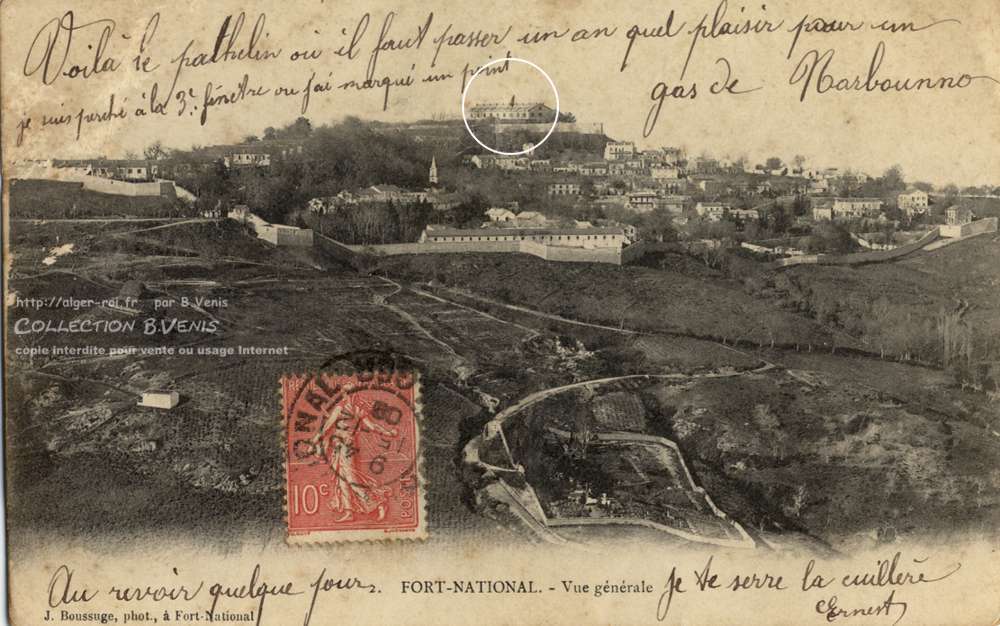 Voilà le pathelin où il faut passer un an quel plaisir pour un
gas de Narbounno
je suis perché à la 3e fénêtre ou j'ai marqué un point
http://alger-roi.fr par B.Venis
COLLECTION B.VENIS
copie interdite pour vente ou usage Internet
10c
Au revoir quelque jour
2. FORT-NATIONAL. - Vue générale
Je te serre la cuillère
Ernest
J. Boussuge, phot., à Fort-National